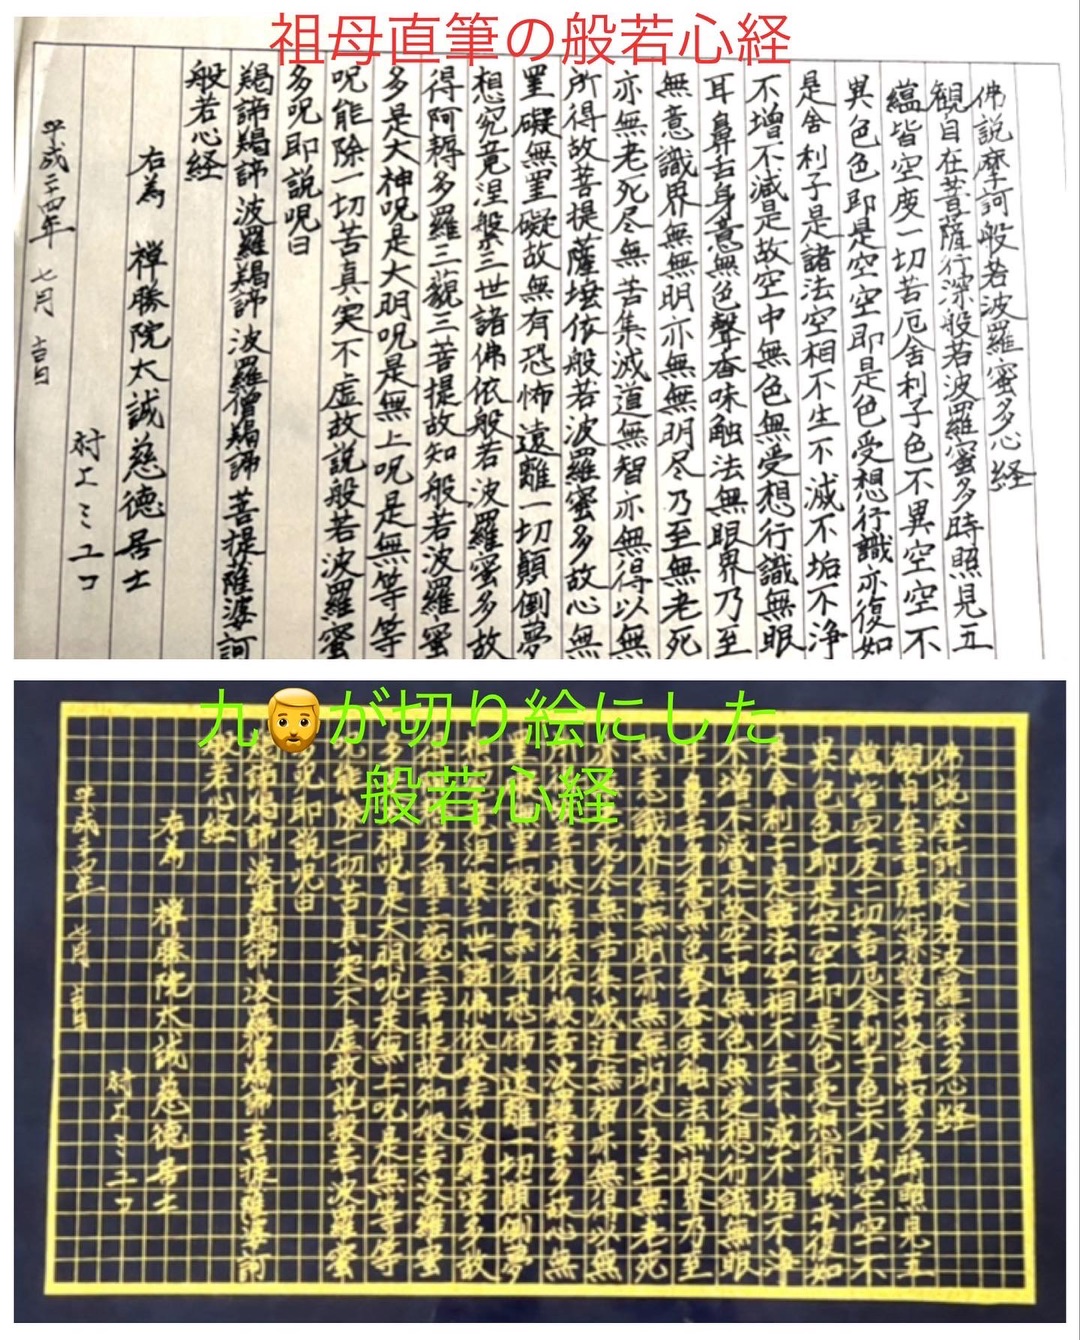 祖母直筆の般若心経
佛説摩訶般若波羅蜜多心経
観自在菩薩行深般若波羅蜜多時照見五
蘊皆空度一切苦厄舎利子色不異空空不
異色色即是空空即是色受想行識亦復如
是舎利子是諸法空相不生不滅不垢不浄
不増不減是故空中無色無受想行識無眼
耳鼻舌身意無色聲香味触法無眼界乃至
無意識界無無明亦無無明尽乃至無老死
亦無老死尽無苦集滅道無智亦無得以無
所得故菩提薩埵依般若波羅蜜多故心無
罣礙無罣礙故無有恐怖遠離一切顛倒夢
想究竟涅槃三世諸佛依般若波羅蜜多故
得阿耨多羅三藐三菩提故知般若波羅蜜
多是大神呪是大明呪是無上呪是無等等
呪能除一切苦真実不虚故説般若波羅蜜
多呪即説呪曰
羯諦羯諦波羅羯諦波羅僧羯諦菩提薩婆訶
般若心経
右為 禅勝院太誠慈徳居士
村上ミユコ
平成二四年 七月 吉日
九🧔が切り絵にした
般若心経
佛説摩訶般若波羅蜜多心経
観自在菩薩行深般若波羅蜜多時照見五
蘊皆空度一切苦厄舎利子色不異空空不
異色色即是空空即是色受想行識亦復如
是舎利子是諸法空相不生不滅不垢不浄
不増不減是故空中無色無受想行識無眼
耳鼻舌身意無色聲香味触法無眼界乃至
無意識界無無明亦無無明尽乃至無老死
死尽無苦集滅道無智亦無得以無
菩提薩埵依般若波羅蜜多故心無
罣礙故無有恐怖遠離一切顛倒夢
涅槃三世諸佛依般若波羅蜜多故
多羅三藐三菩提故知般若波羅蜜
神呪是大明呪是無上呪是無等等
能除一切苦真実不虚故説般若波羅蜜
多呪即説呪曰
羯諦羯諦波羅羯諦波羅僧羯諦菩提薩婆訶
般若心経
右為 禅勝院太誠慈徳居士
村上ミユコ
平成二四年 七月 吉日